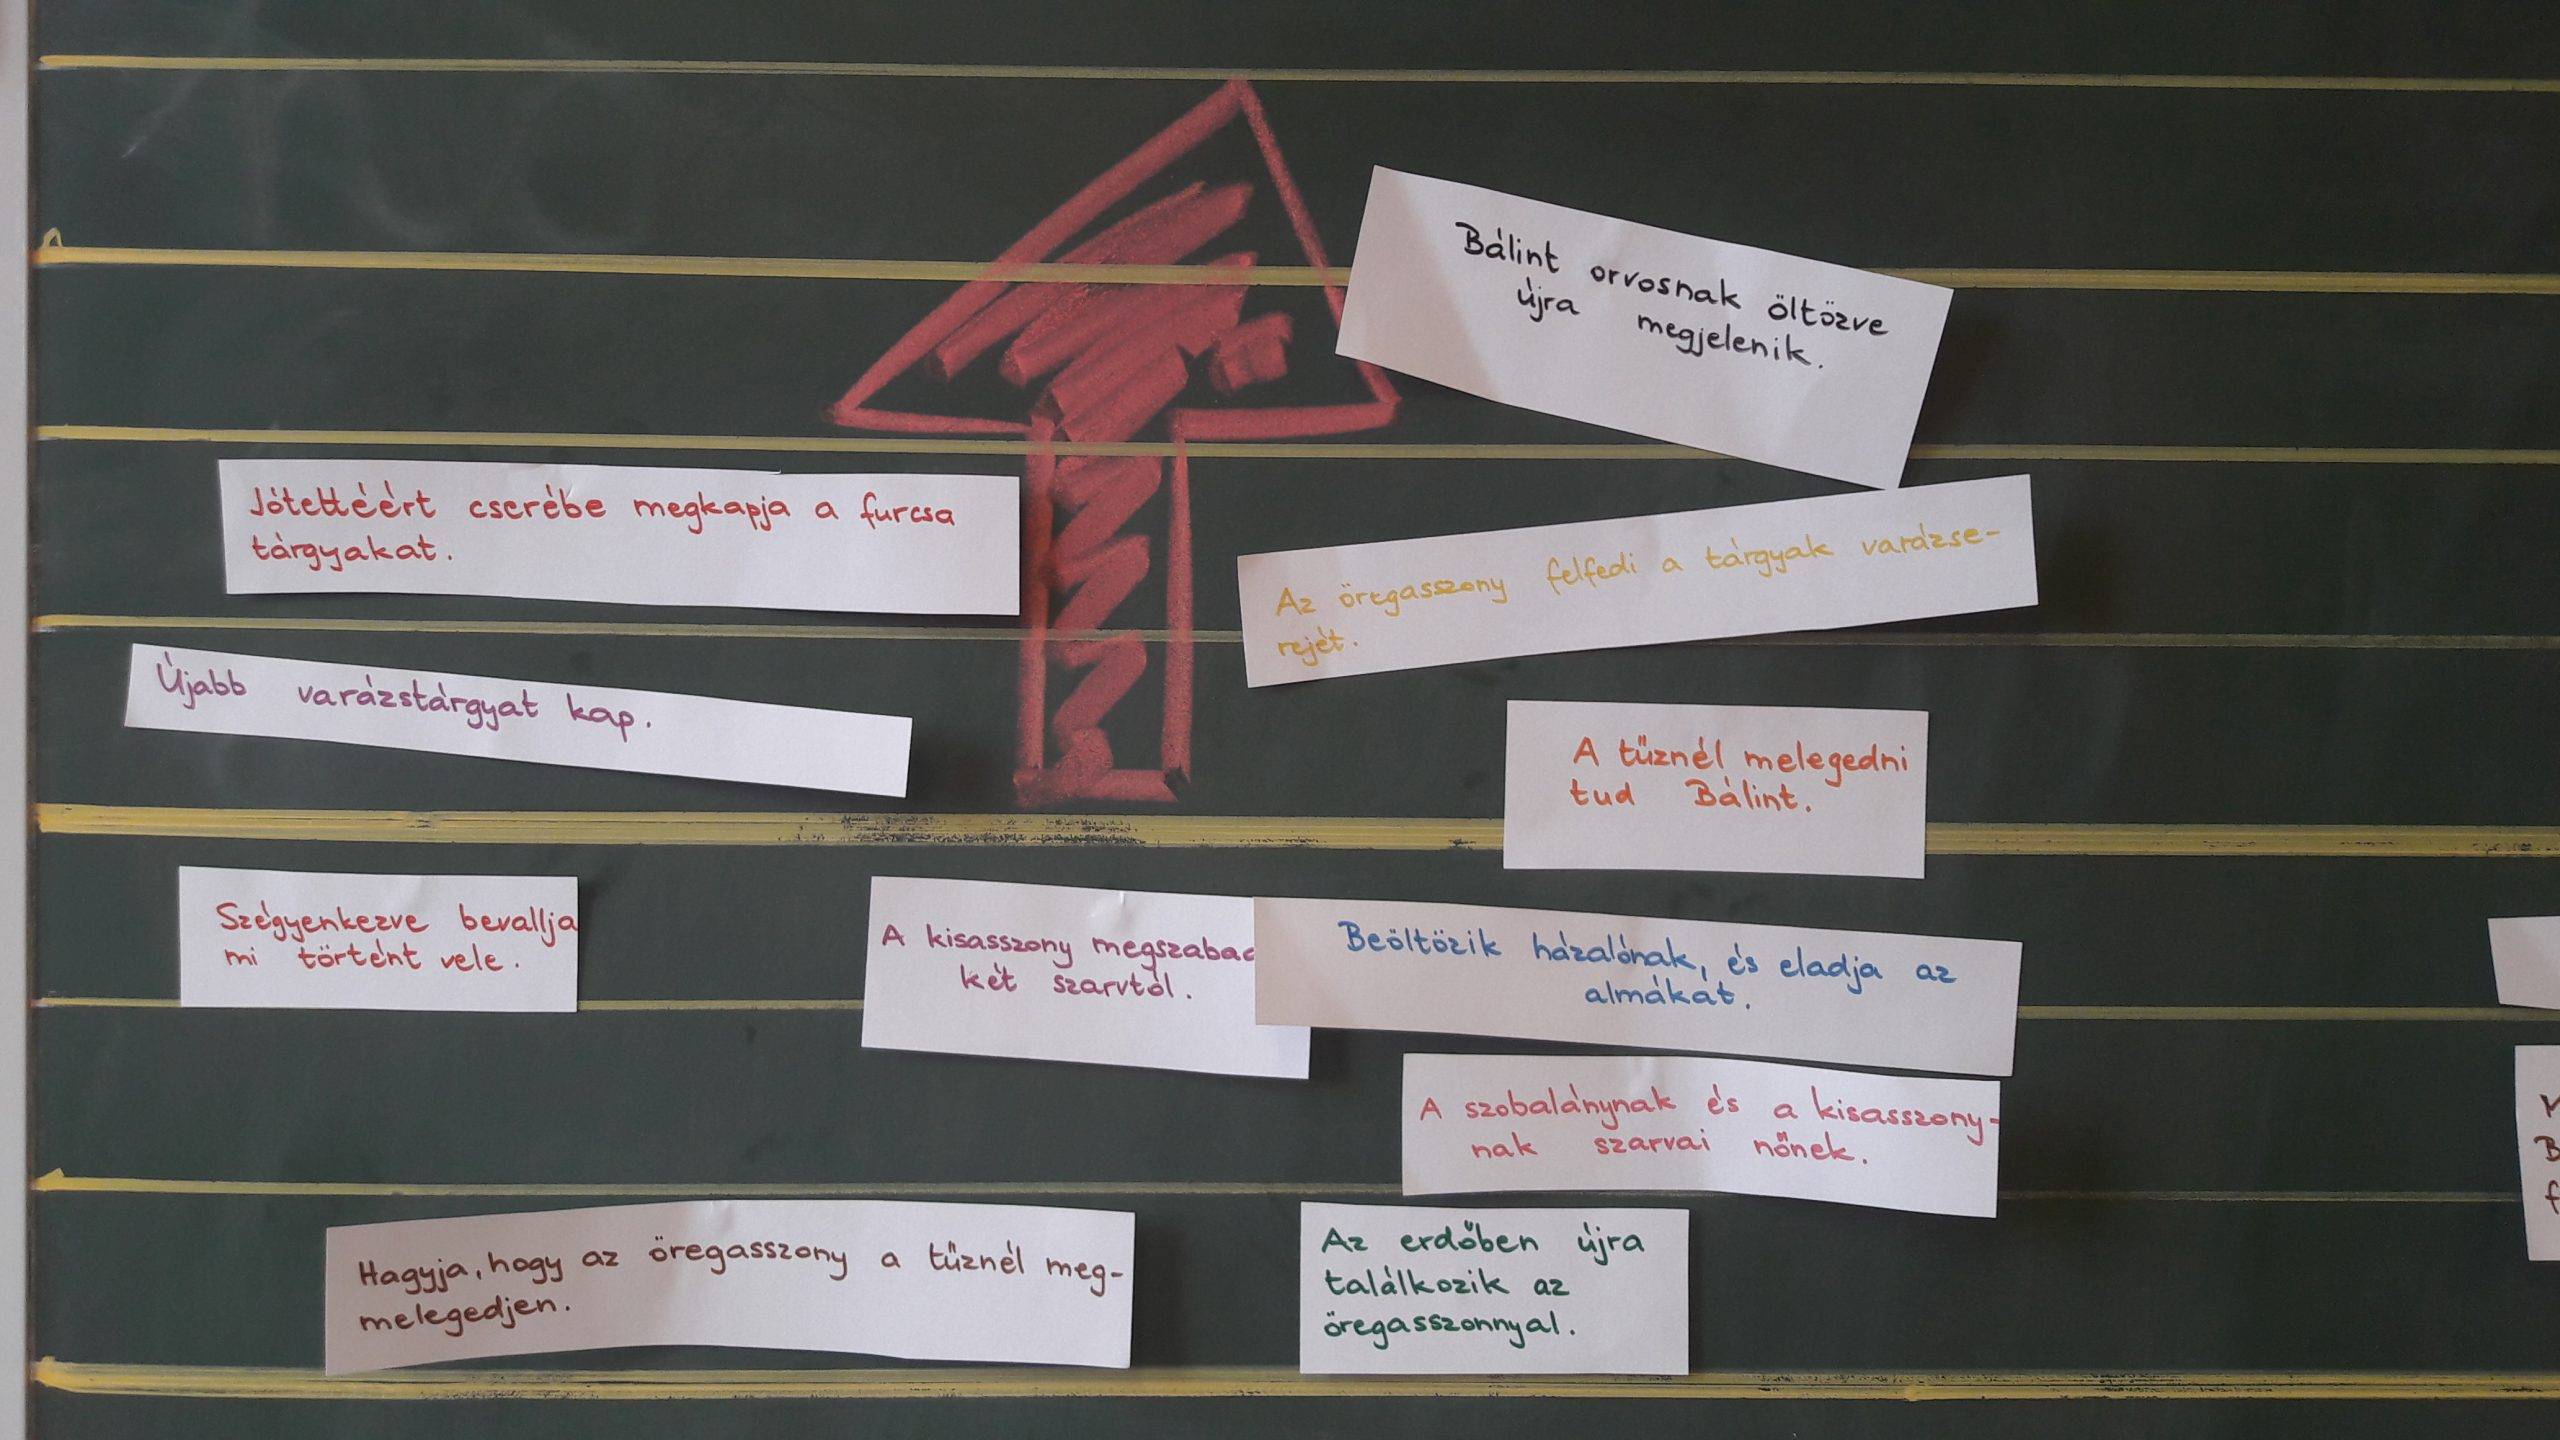 Bálint orvosnak öltözve
újra megjelenik.
Jótettéért cserébe megkapja a furcsa
tárgyakat.
Az öregasszony felfedi a tárgyak varázse-
rejét.
Újabb varázstárgyat kap.
A tűznél melegedni
tud Bálint.
Szégyenkezve bevallja
mi történt vele.
A kisasszony megszabad
két szarvtól.
Beöltözik házalónak, és eladja az
almákat.
A szobalánynak és a kisasszony-
nak szarvai nőnek.
Hagyja, hogy az öregasszony a tűznél meg-
melegedjen.
Az erdőben újra
találkozik az
öregasszonnyal.